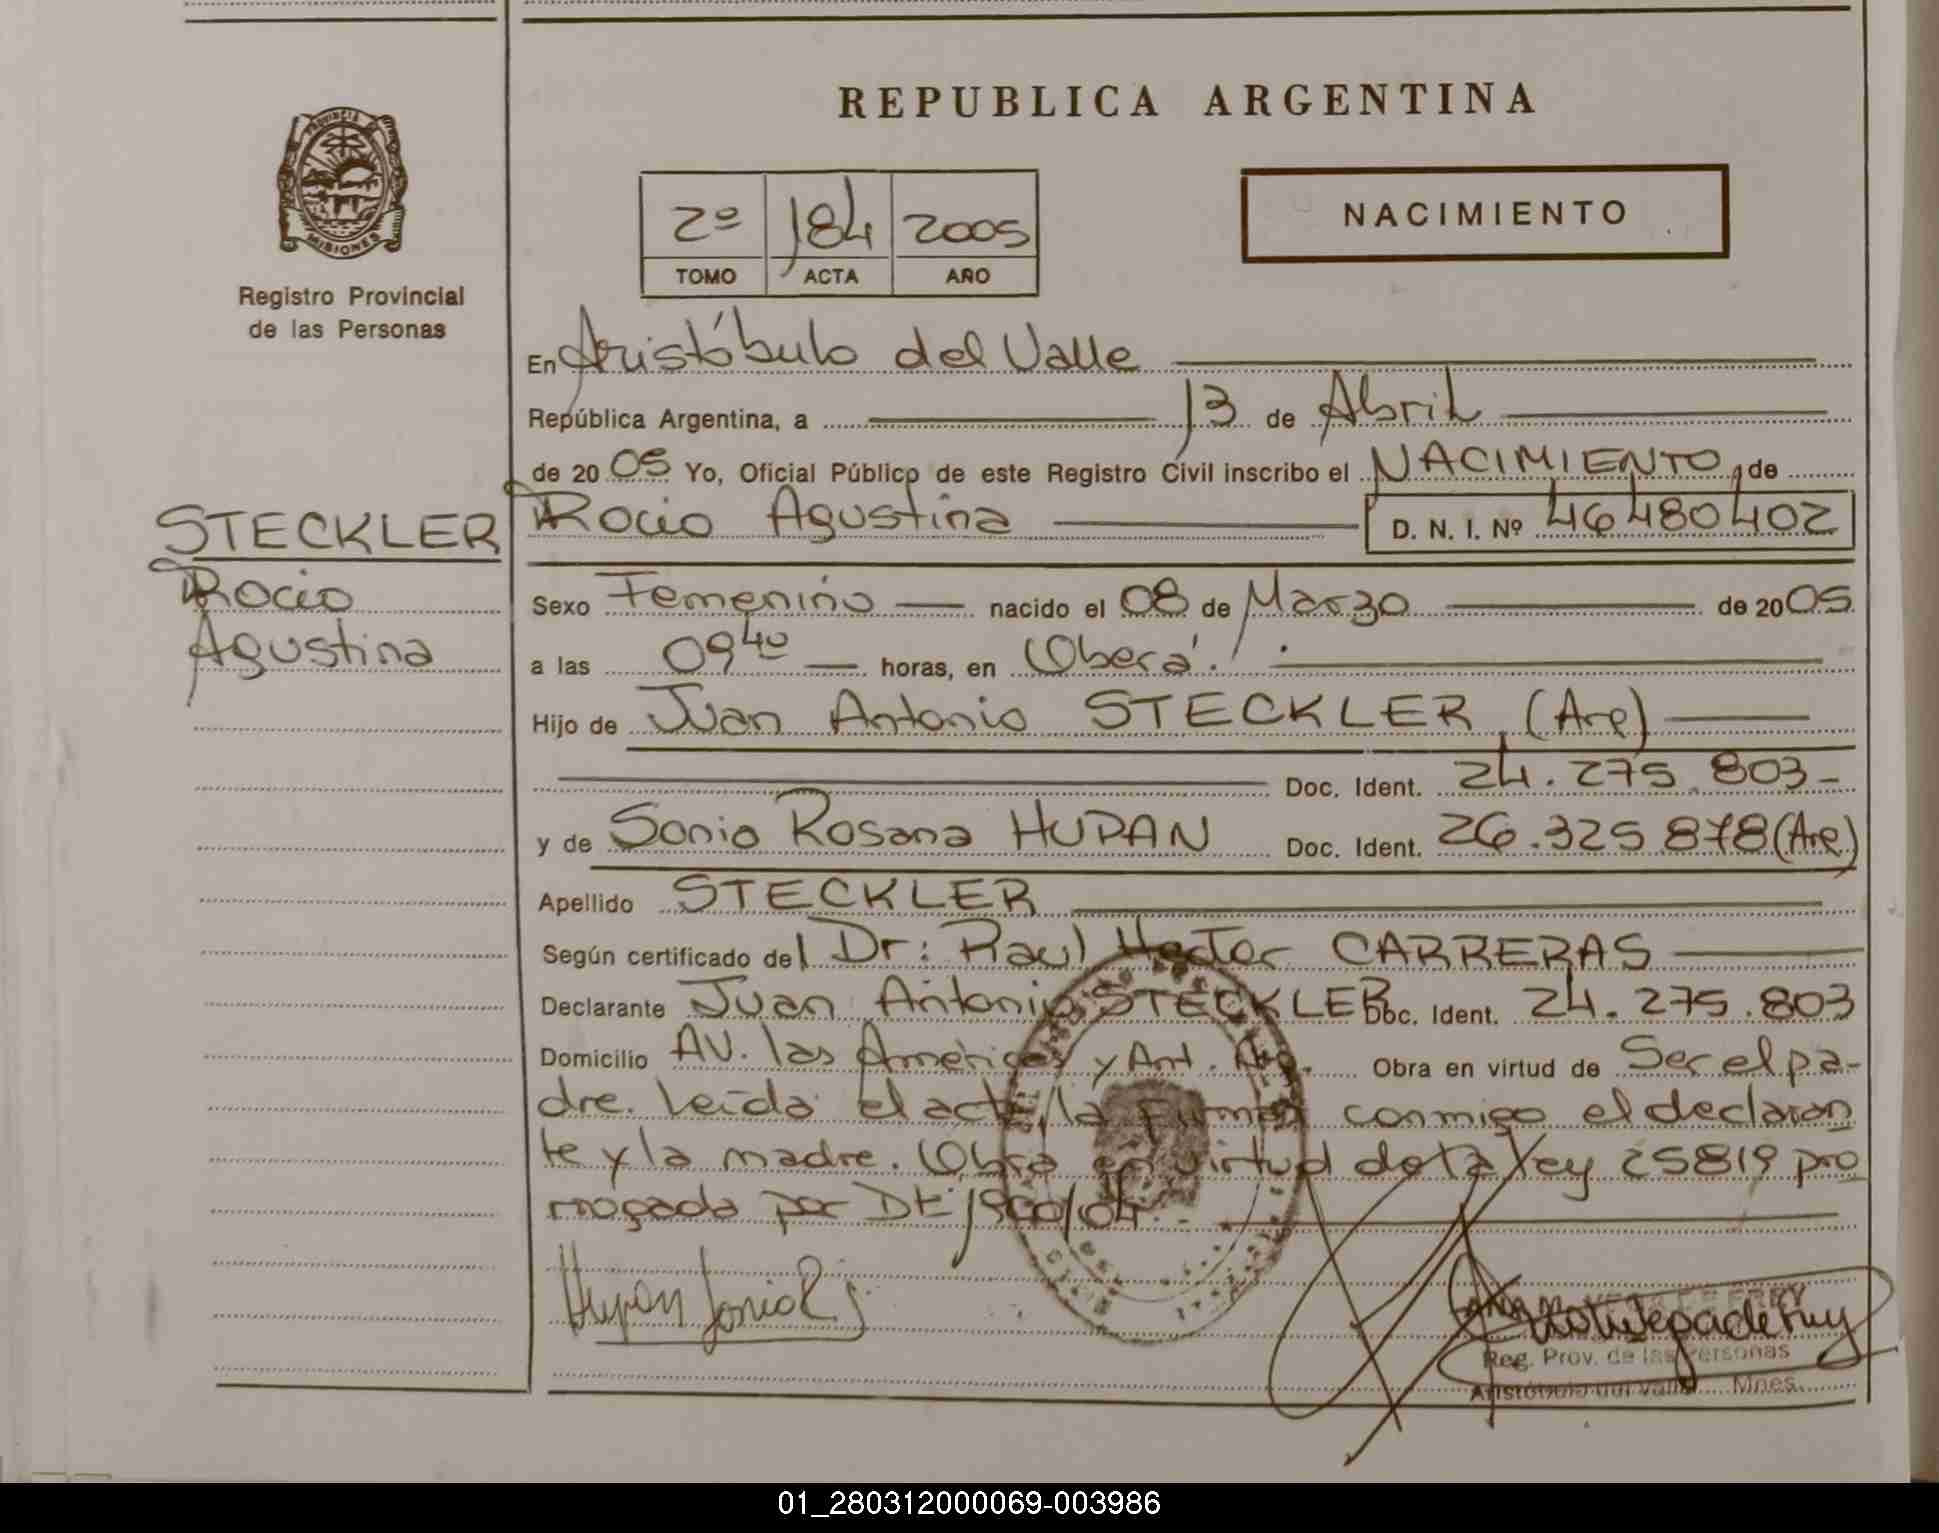 REPUBLICA ARGENTINA
PROVINCIA DE
MISIONES
Registro Provincial
de las Personas
NACIMIENTO
2º 184 2005
TOMO ACTA AÑO
En Aristóbulo del Valle
República Argentina, a 13 de Abril
de 2005 Yo, Oficial Público de este Registro Civil inscribo el NACIMIENTO de
STECKLER
Rocio
Agustina
Rocio Agustina D. N. I. Nº 46480402
Sexo Femenino nacido el 08 de Marzo de 2005
a las 09⁴⁰ horas, en Oberá.
Hijo de Juan Antonio STECKLER (Arg)
Doc. Ident. 24.275.803-
y de Sonia Rosana HUPAN Doc. Ident. 26.325.878 (Arg)
Apellido STECKLER
Según certificado del Dr: Raul Hector CARRERAS
Declarante Juan Antonio STECKLER Doc. Ident. 24.275.803
Domicilio AV. las Américas y Ant. Obra en virtud de Ser el pa-
dre. Leída el acta, la firman conmigo el declaran
te y la madre. Obra en virtud de la Ley 25819 pro
rrogada por
Hupan Sonia R
Reg. Prov. de las Personas
Aristóbulo del Valle Mnes.
01_280312000069-003986